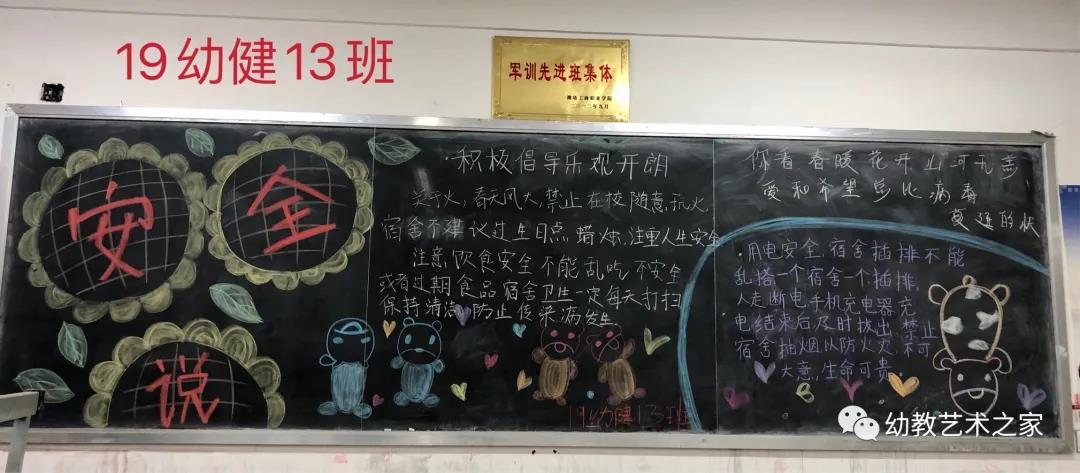 19幼健13班
军训先进班集体
潍坊工商职业学院
二〇一二年九月
安
全
说
·积极倡导乐观开朗
关于火,春天风大,禁止在校随意玩火,
宿舍不建议过生日点蜡烛,注重人生安全
注意饮食安全不能乱吃不安全
或者过期食品宿舍卫生一定每天打扫
保持清洁,防止传染病发生
19幼健13班
你看春暖花开山河无恙
爱和希望总比病毒
蔓延的快
·用电安全,宿舍插排不能
乱搭一个宿舍一个插排,
人走断电手机充电器充
电结束后及时拔出禁止
宿舍抽烟以防火灾,不可
大意,生命可贵。
幼教艺术之家